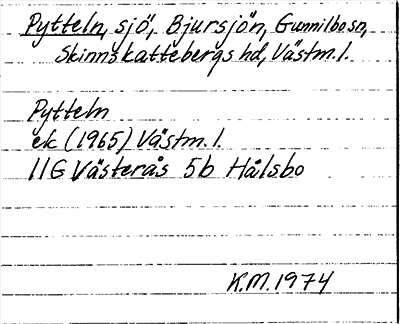 Pytteln, sjö, Bjursjön, Gunnilbo sn,
Skinnskattebergs hd, Västm.l.
Pytteln
ek (1965) Västm.l.
11G Västerås 5b Hålsbo
K.M. 1974